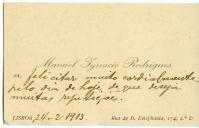 Manuel Ignacio Rodrigues
a felicitar muito cordialmente
pelo dia de hoje, de que deseja
muitas repetições.
LISBOA 24-2-1913.
Rua de D. Estephania, 174, 2.º D.